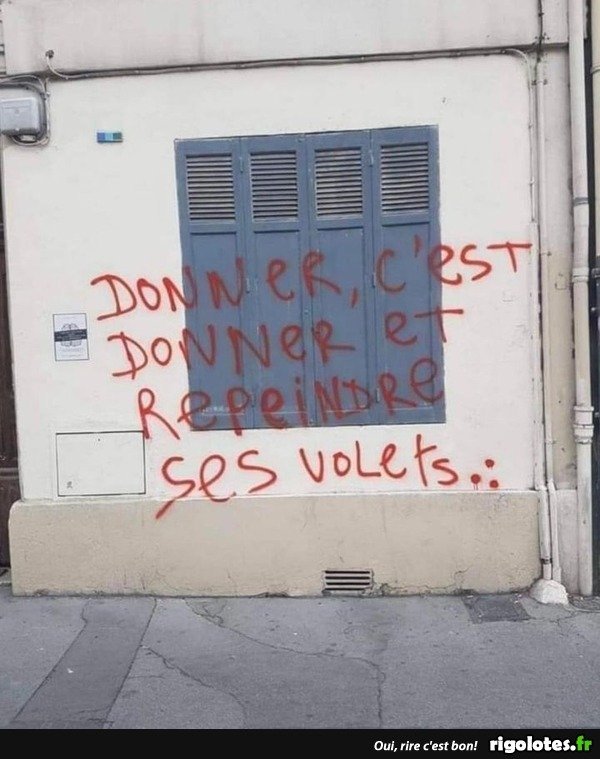 DONNER, C'EST
DONNER ET
REPEINDRE
SES VOLETS..:
Oui, rire c'est bon! rigolotes.fr